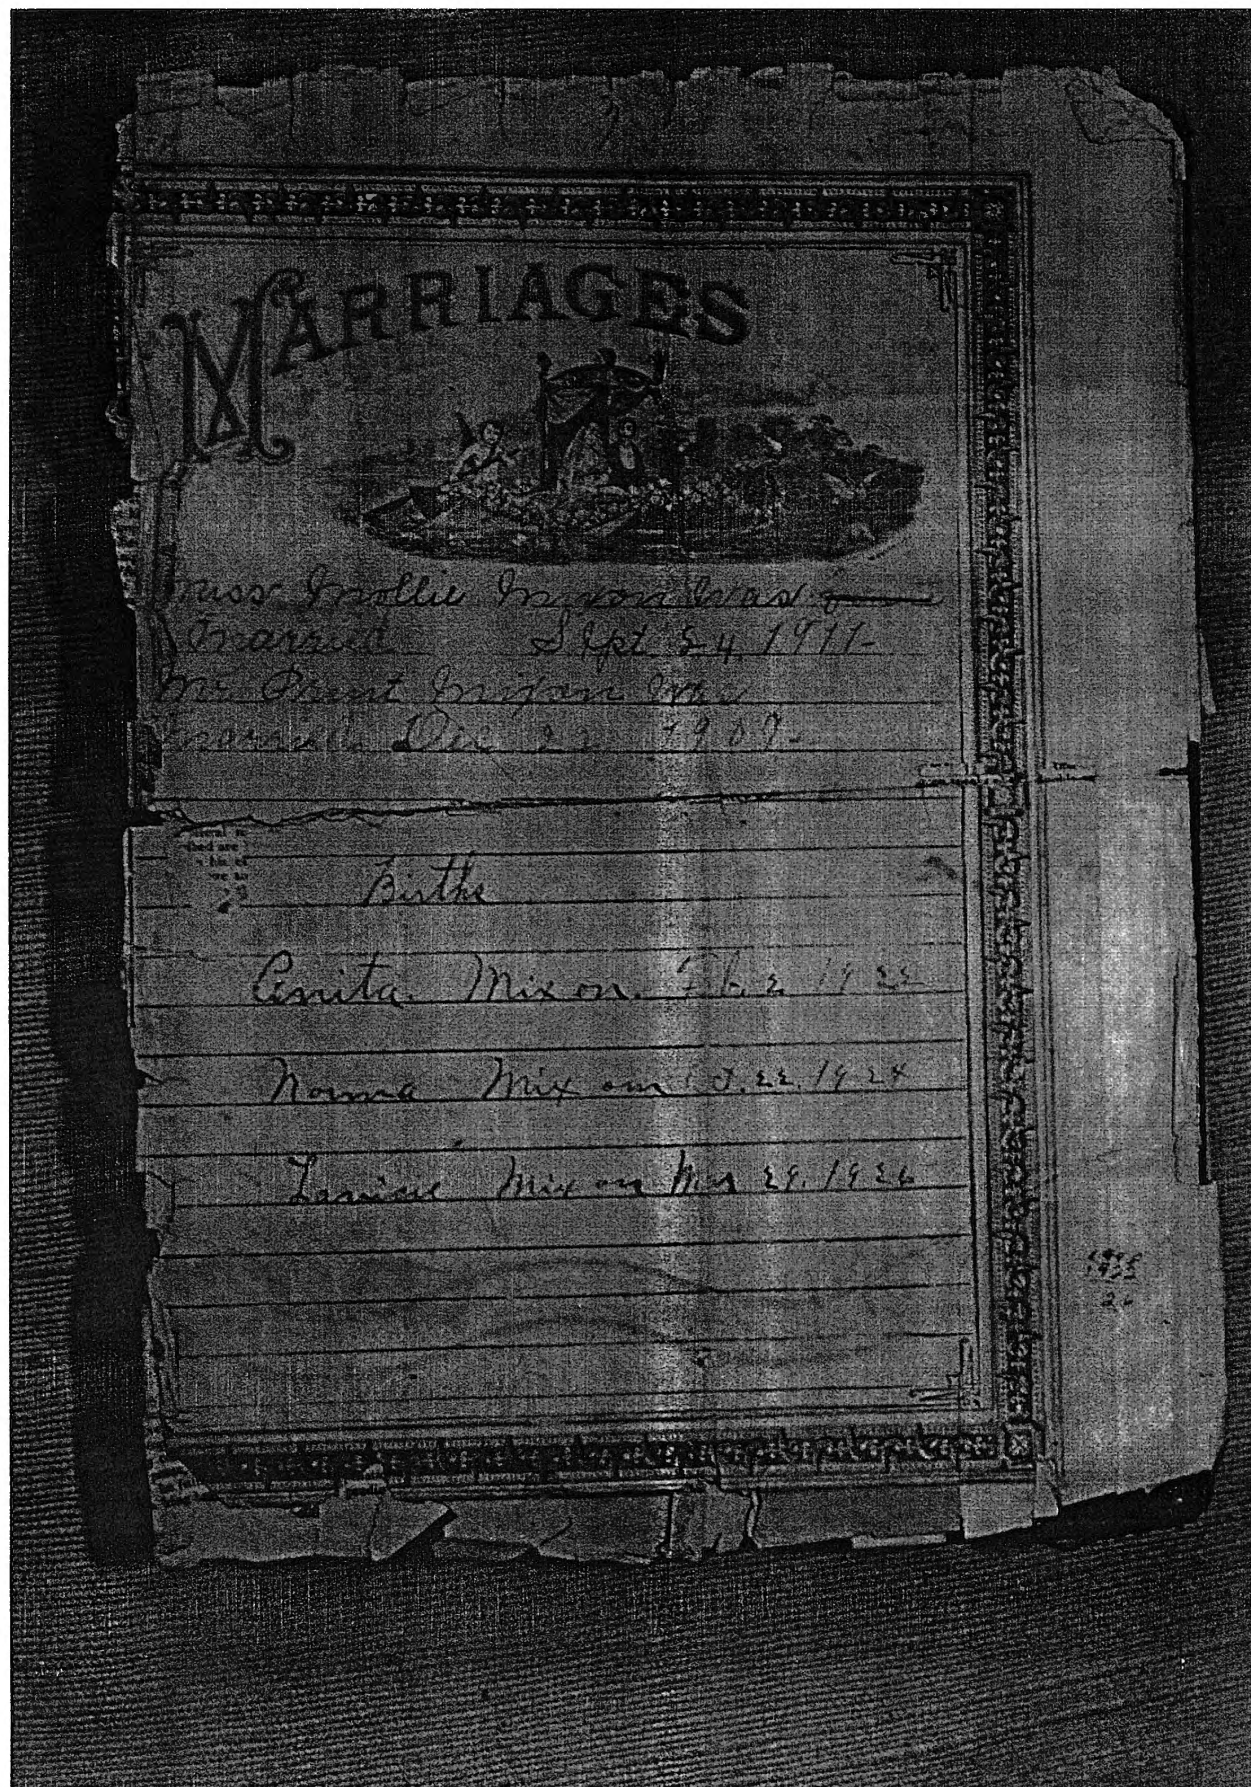 MARRIAGES
Miss Mollie Mixon was
Married Sept 24, 1911-
Mr Mixon was
married Dec 1909-
Births
Anita Mixon. Feb. 2 1922
Norma Mixon 22. 1924
Louise Mixon Mar 29. 1926